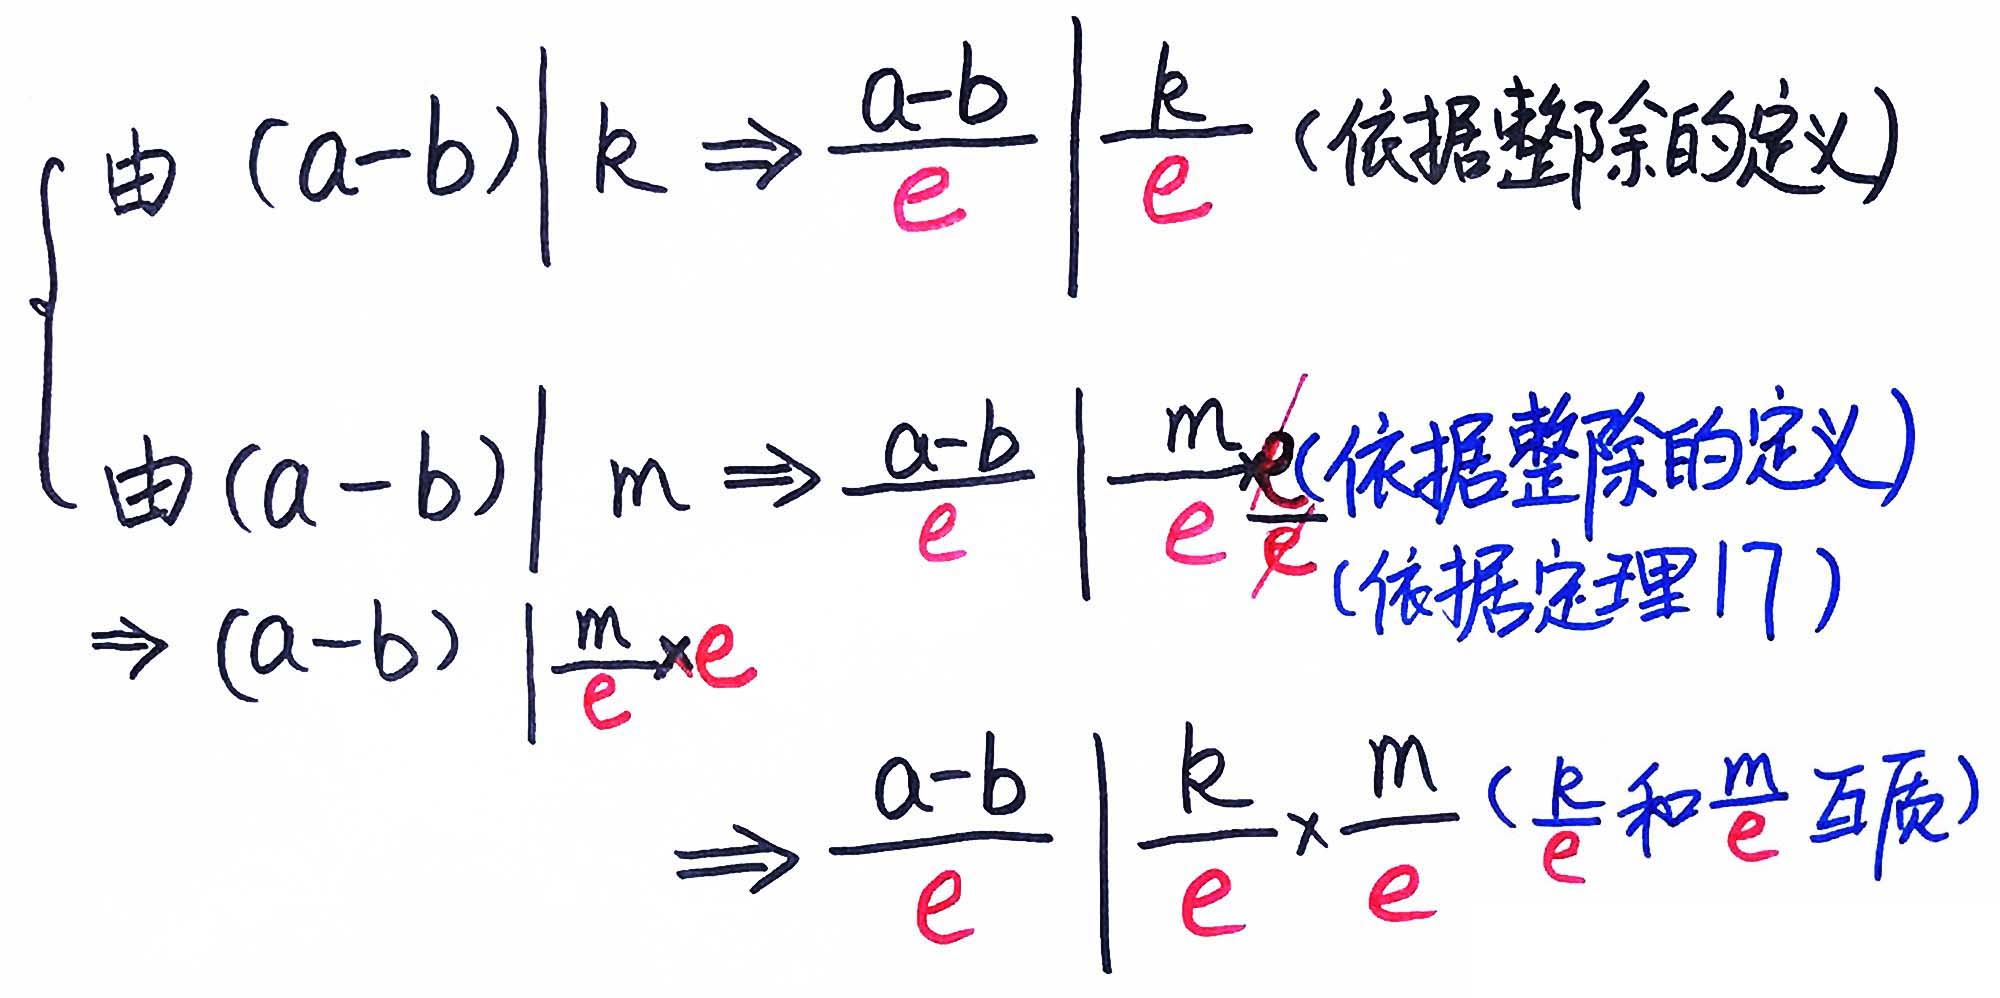 由 (a-b) | k ⇒ \frac{a-b}{e} | \frac{k}{e} (依据整除的定义)
由(a-b) | m ⇒ \frac{a-b}{e} | \frac{m}{e} × \frac{e}{e} (依据整除的定义)
(依据定理17)
⇒ (a-b) | \frac{m}{e} × e
⇒ \frac{a-b}{e} | \frac{k}{e} × \frac{m}{e} (\frac{k}{e} 和 \frac{m}{e} 互质)